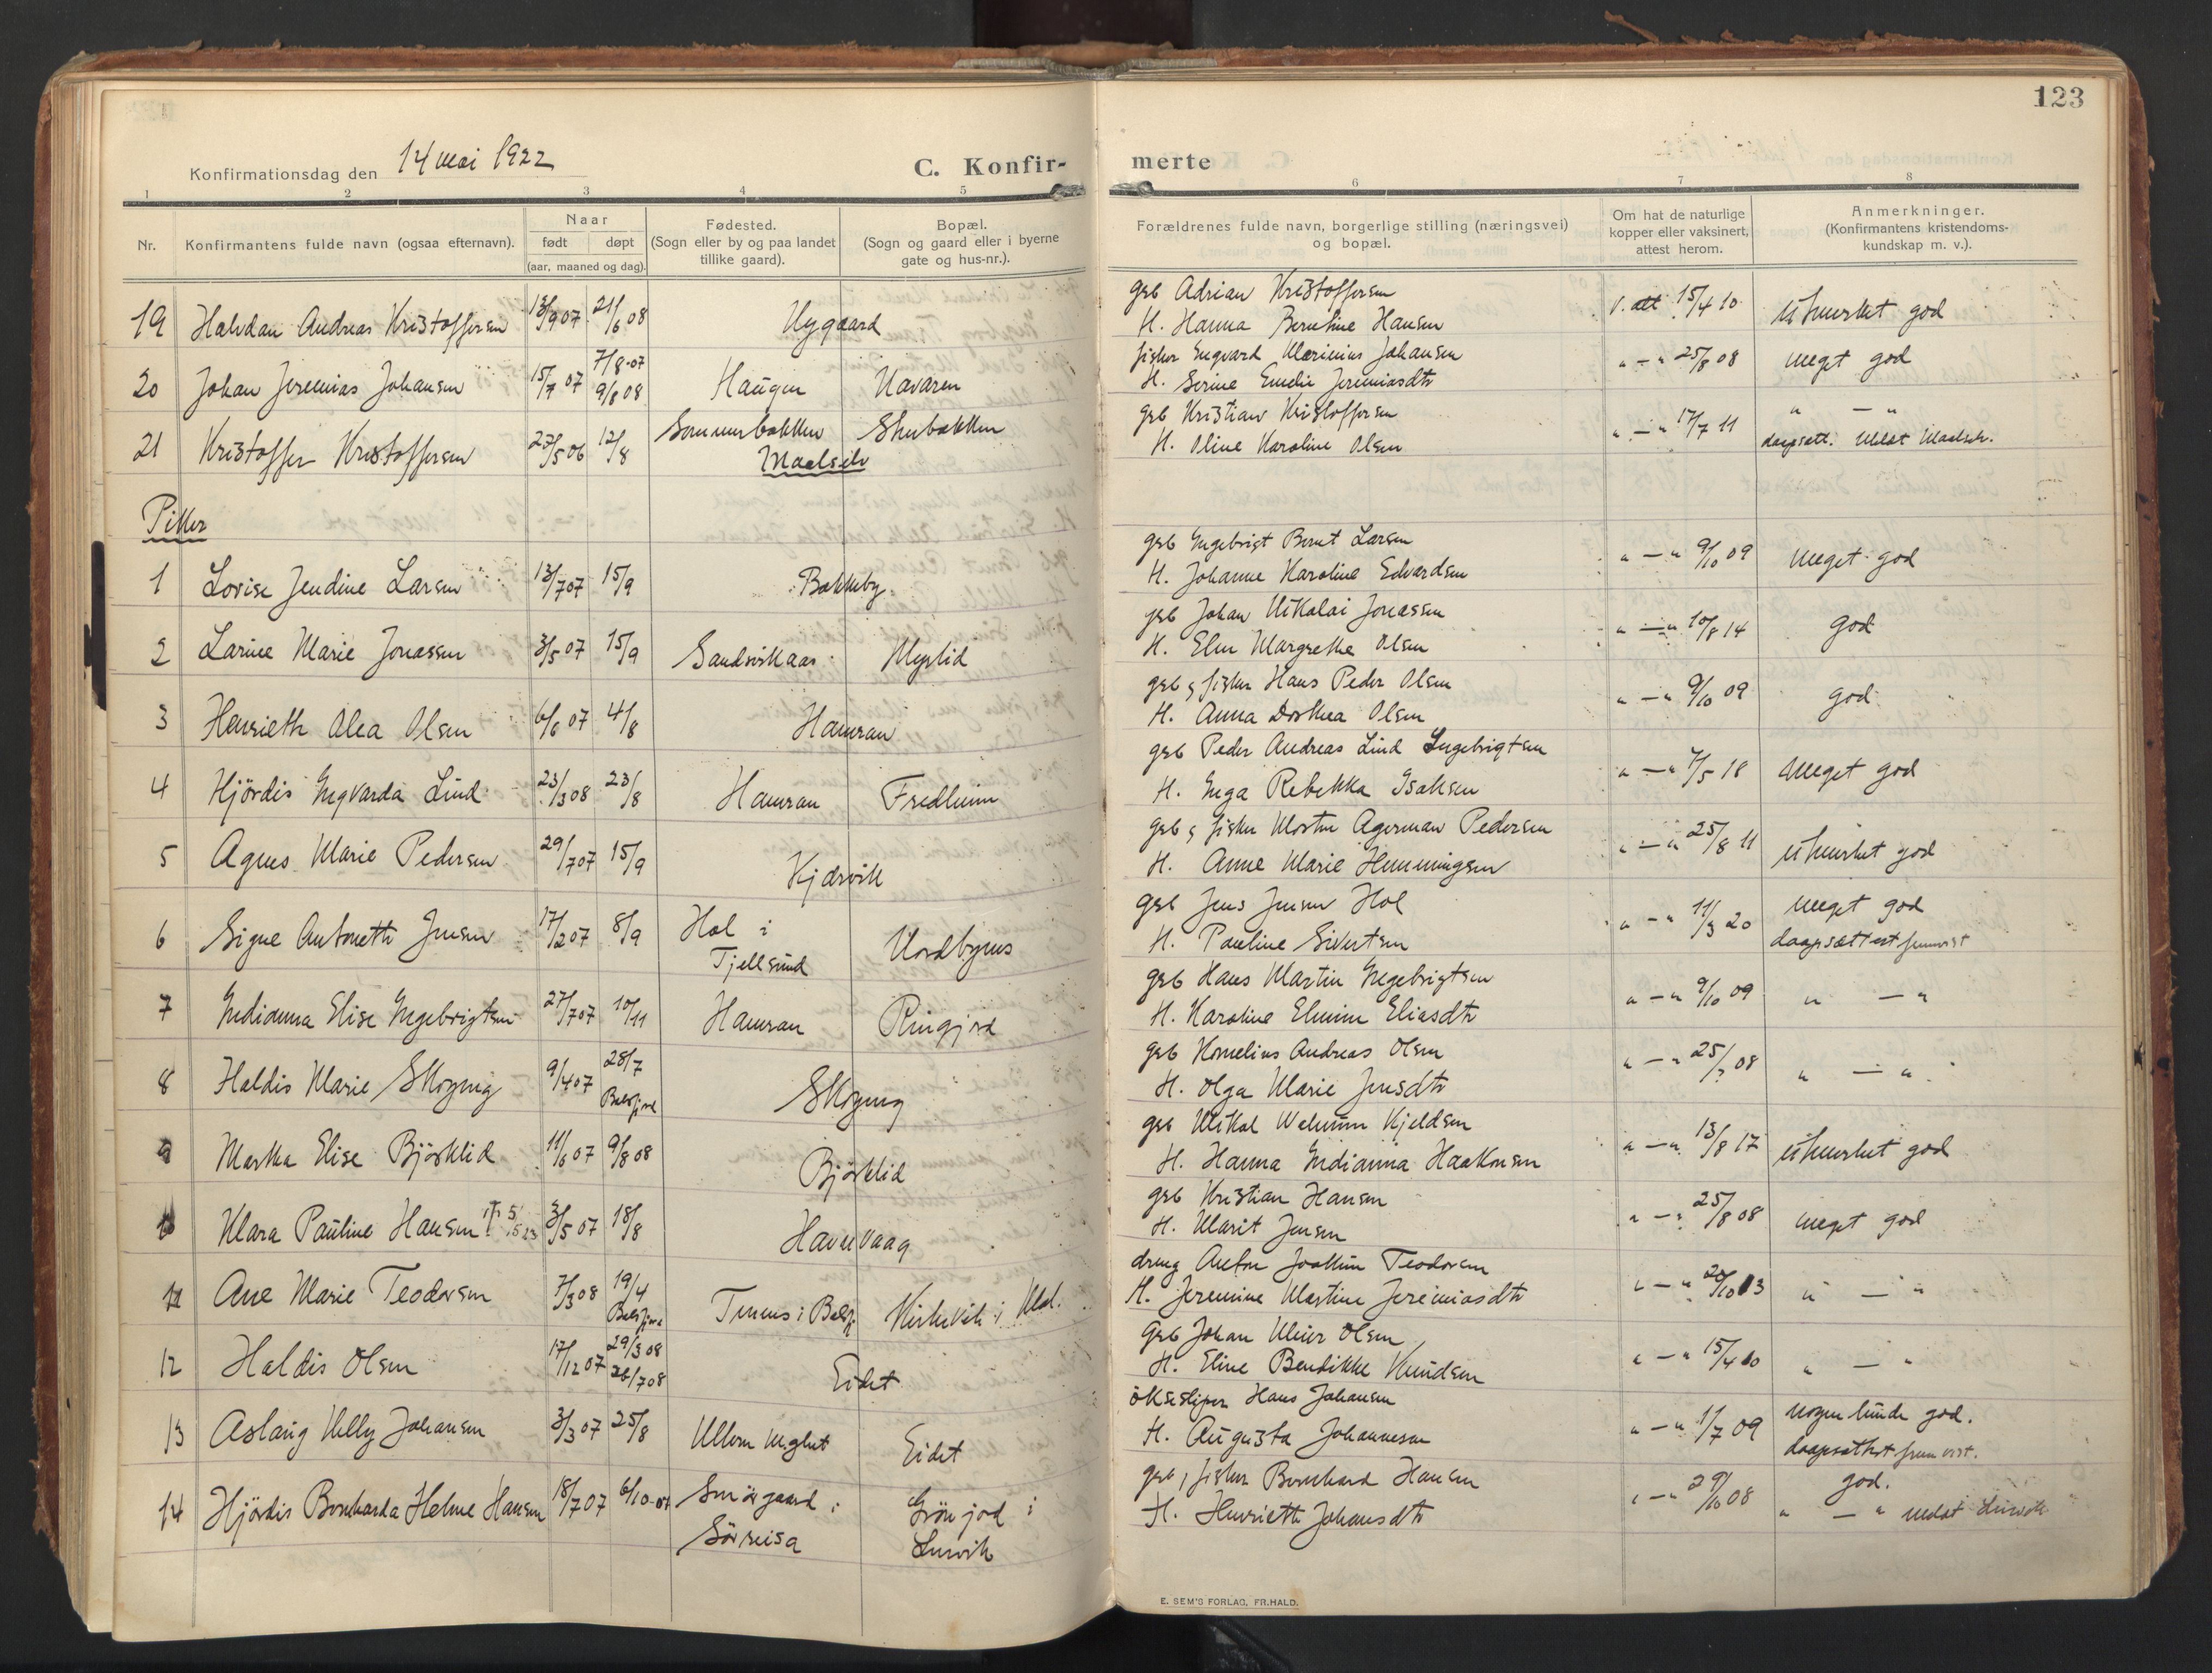 123
Konfirmationsdag den 14 mai 1922
C. Konfir-
merte
1 2 3 4 5 6 7 8
Nr.
Konfirmantens fulde navn (ogsaa efternavn).
Naar
født døpt
(aar, maaned og dag).
Fødested.
(Sogn eller by og paa landet
tillike gaard).
Bopæl.
(Sogn og gaard eller i byerne
gate og hus-nr.).
Forældrenes fulde navn, borgerlige stilling (næringsvei)
og bopæl.
Om hat de naturlige
kopper eller vaksinert,
attest herom.
Anmerkninger.
(Konfirmantens kristendoms-
kundskap m. v.).
19 Halvdan Andreas Kristoffersen 13/9 07 21/6 08 Nygaard
gsb Adrian Kristoffersen
H. Hanna Berntine Hansen
v. att 15/4 10 utmerket god
20 Johan Jeremias Johansen 15/7 07 7/8-07
9/8 08 Haugen Navaren
fisker Ingvard Marinius Johansen
H. Serine Emelie Jeremiasdtr
" — " 25/8 08 meget god
21 Kristoffer Kristoffersen 27/5 06 12/8 Sommerbakken
Maalselv
gsb Kristian Kristoffersen
H. Oline Karoline Olsen
" — " 17/7 11 " — "
daapsatt.
Piker
1 Lovise Jendine Larsen 13/7 07 15/9 Bakkeby
gsb Ingebrigt Bernt Larsen
H. Johanne Karoline Edvardsen
" — " 9/10 09 meget god
2 Larine Marie Jonassen 3/5 07 15/9 Sandvikaas Myrlid
gsb Johan Nikolai Jonassen
H. Elen Margrethe Olsen
" — " 10/8 14 god
3 Henriette Alea Olsen 6/6 07 4/8 Hamran
gsb & fisker Hans Peder Olsen
H. Anna Dorthea Olsen
" — " 9/10 09 god
4 Hjördis Ingvarda Lind 23/3 08 23/8 Hamran Fredheim
gsb Peder Andreas Lind Ingebrigtsen
H. Inga Rebekka Isaksen
" — " 7/5 18 meget god
5 Agnes Marie Pedersen 29/7 07 15/9 Kjærvik
gsb & fisker Morten Agerman Pedersen
H. Anne Marie Hemmingsen
" — " 25/8 11 utmerket god
6 Signe Antonette Jensen 17/2 07 8/9 Hol i
Tjellsund Nordbynes
gsb Jens Jensen Hol
H. Pauline Sivertsen
" — " 11/3 20 meget god
daapsattest fremvist
7 Indianna Elise Ingebrigtsen 27/7 07 10/11 Hamran Ringjord
gsb Hans Martin Ingebrigtsen
H. Karoline Elmine Eliasdtr
" — " 9/10 09 " — "
8 Haldis Marie Skogeng 9/4 07 28/7
Balsfjord Skogeng
gsb Kornelius Andreas Olsen
H. Olga Marie Jensdtr
" — " 25/ 08 " — "
9 Martha Elise Björklid 11/6 07 9/8 08 Björklid
gsb Nikol Kjeldsen
H. Hanna Indianna Haakonsen
" — " 13/8 17 utmerket god
10 Klara Pauline Hansen † 5/5 23 3/5 07 18/8 Havnvaag
gsb Kristian Hansen
H. Marit Jensen
" — " 25/8 08 meget god
11 Ane Marie Teodorsen 7/3 08 19/4
Balsfjord Tennes i Balsfj. Kirkevik i Mal.
dreng Anton Joakim Teodorsen
H. Jeremine Martine Jeremiasdtr
" — " /10 13 " — "
12 Haldis Olsen 17/12 07 29/3 08
26/7 08 Eidet
gsb Johan Meier Olsen
H. Eline Bendikke Knudsen
" — " 15/4 10 " — "
13 Aslaug Nelly Johansen 3/3 07 25/8 Eidet
Hans Johansen
H. Augusta Johannesen
" — " 1/7 09 nogenlunde god.
daapsattest fremvist.
14 Hjördis Bernharda Helene Hansen 18/7 07 6/10-07 Smörsgaard i
Sörreisa Grönjord i
Lenvik
gsb, fisker Bernhard Hansen
H. Henriette Johansdtr
" — " 29/10 08 god.
" — " meldt Lenvik
E. SEM'S FORLAG, FR.HALD.